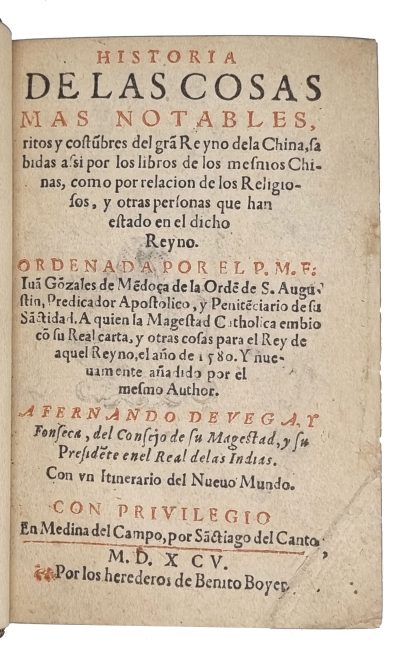 HISTORIA
DE LAS COSAS
MAS NOTABLES,
ritos y costũbres del grã Reyno dela China, sa
bidas assi por los libros de los mesmos Chi-
nas, como por relacion de los Religio-
sos, y otras personas que han
estado en el dicho
Reyno.
ORDENADA POR EL P. M. F:
Iuã Gõzales de Mẽdoça de la Ordẽ de S. Augu
stin, Predicador Apostolico, y Penitẽciario de su
Sãctidad. A quien la Magestad Catholica embio
cõ su Real carta, y otras cosas para el Rey de
aquel Reyno, el año de 1580. Y nue-
uamente añadido por el
mesmo Author.
A FERNANDO DE VEGA, Y
Fonseca, del Consejo de su Magestad, y su
Presidẽte en el Real de las Indias.
Con vn Itinerario del Nueuo Mundo.
CON PRIVILEGIO
En Medina del Campo, por Sãctiago del Canto,
M. D. X CV.
Por los herederos de Benito Boyer.